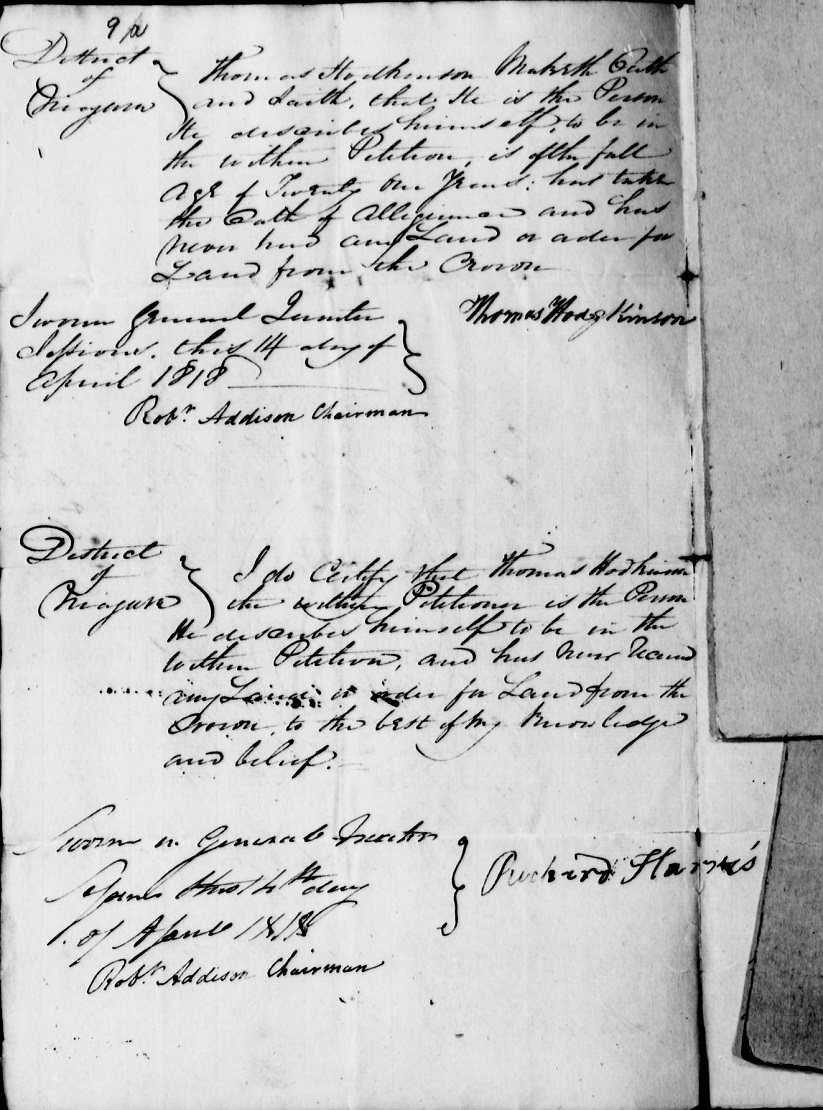 9/a
District
of
Niagara
Thomas Hodkinson Maketh Oath
and Saith, that He is the Person
He describes himself to be in
the within Petition, is of the full
Age of Twenty One Years; has taken
the Oath of Allegiance and has
Never had any Land or order for
Land from the Crown
Thomas Hodgkinson
Sworn General Quarter
Sessions, this 14 day of
April 1818
Robt Addison Chairman
District
of
Niagara
I do Certify that Thomas Hodkinson
the within Petitioner is the Person
He describes himself to be in the
within Petition, and has Never
any Land or order for Land from the
Crown, to the best of My Knowledge
and belief.
Sworn in General Quarter
Sessions this 14th day
of April 1818
Richard Harris
Robt Addison Chairman